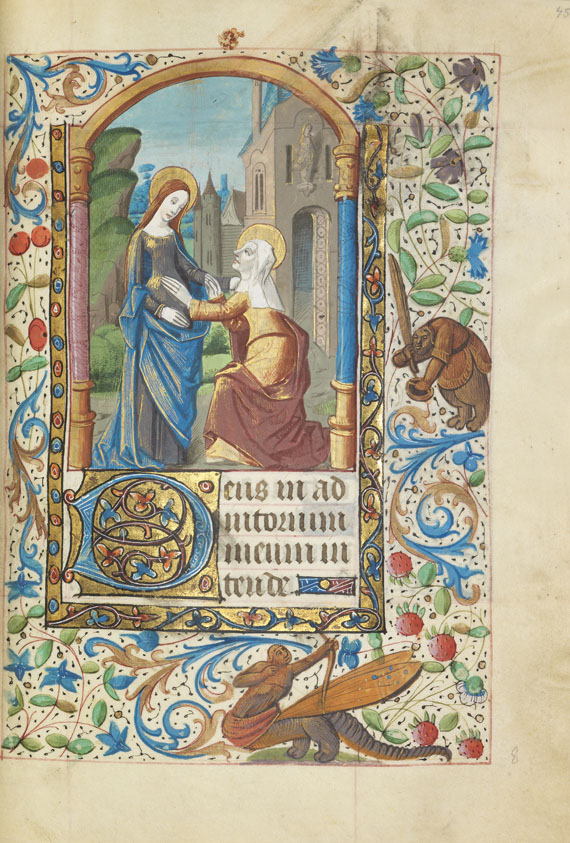 Deus in ad
iutorium
meum in
tende.